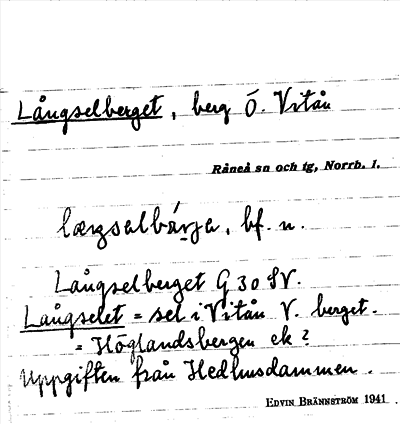 Långselberget, berg Ö. Vitån
Råneå sn och tg, Norrb. l.
laŋsalbárje, bf. n.
Långselberget G 30 SV.
Långselet = sel i Vitån V. berget.
= Höglandsbergen ek?
Uppgiften från Hedhusdammen.
EDVIN BRÄNNSTRÖM 1941